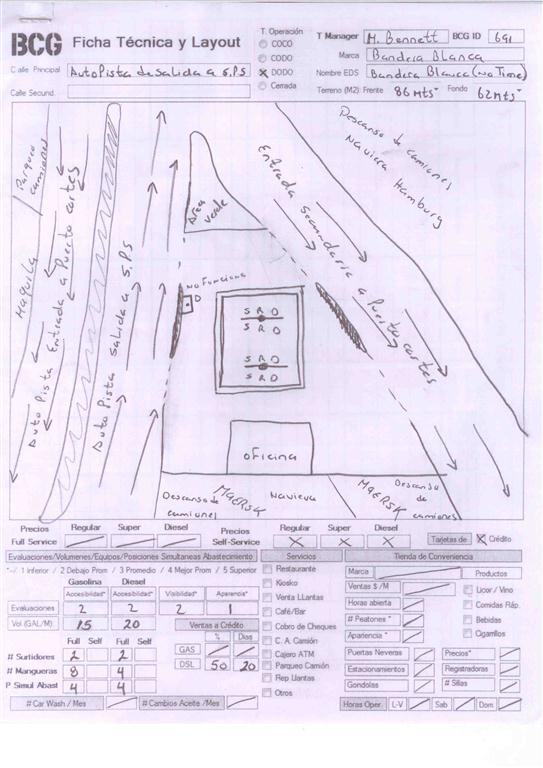 BCG Ficha Técnica y Layout
T. Operación
COCO
CODO
DODO
Cerrada
T Manager M. Bennett BCG ID 691
Marca Bandera Blanca
Nombre EDS Bandera Blanca (no Tiene)
Terreno (M2): Frente 86 mts- Fondo 62mts-
Calle Principal AutoPista de Salida a S.P.S
Calle Secund.
Parqueo camiones
Maquila
Auto Pista Entrada a Puerto cortes
Auto Pista Salida a S.P.S
Area verde
Entrada Secundaria a Puerto cortes
Descanso de camiones
Naviera Hamburg
No Funciona
D
S R D
S R D
S R D
S R D
oficina
Descanso de camiones MAERSK Naviera
MAERSK Descanso de camiones
Precios Regular Super Diesel Precios Regular Super Diesel
Full Service Self-Service Tarjetas de Crédito
Evaluaciones/Volumenes/Equipos/Posiciones Simultaneas Abastecimiento Servicios Tienda de Conveniencia
*-/ 1 Inferior / 2 Debajo Prom / 3 Promedio / 4 Mejor Prom / 5 Superior
Gasolina Diesel
Accesibilidad* Accesibilidad* Visibilidad* Aparencia*
Evaluaciones 2 2 2 1
Vol (GAL/M) 15 20 Ventas a Crédito
% Dias
Full Self Full Self
GAS
DSL 50 20
# Surtidores 2 2
# Mangueras 8 4
P Simul Abast 4 4
# Car Wash / Mes # Cambios Aceite /Mes
Restaurante
Kiosko
Venta Llantas
Café/Bar
Cobro de Cheques
C. A. Camión
Cajero ATM
Parqueo Camión
Rep Llantas
Otros
Marca Productos
Ventas $ /M Licor / Vino
Horas abierta Comidas Ráp.
# Peatones * Bebidas
Apariencia * Cigarrilos
Puertas Neveras Precios*
Estacionamientos Registradoras
Gondolas # Sillas
Horas Oper. L-V Sab Dom